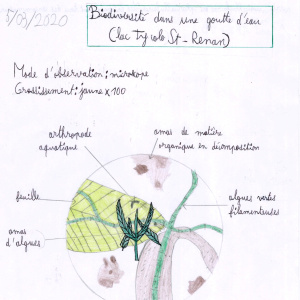 5/03/2020
Biodiversité dans une goutte d'eau
(lac Ty colo St-Renan)
Mode d'observation : microscope
Grossissement : jaune x100
arthropode
aquatique
amas de matière
organique en décomposition
feuille
algues vertes
filamenteuses
amas
d'algues